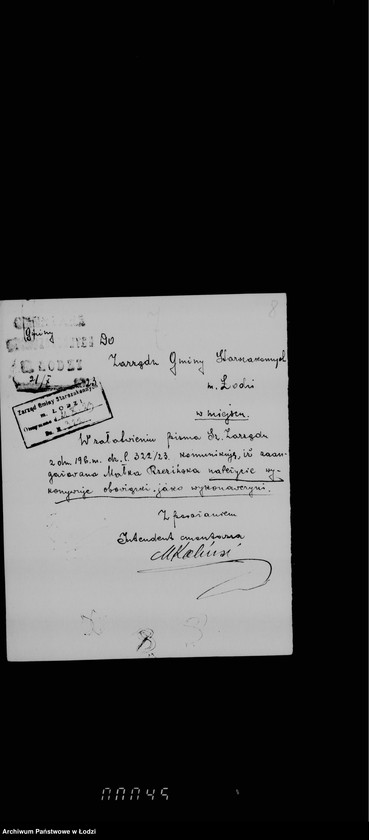 8
Gminy
21/I
Do
Zarządu Gminy Starozakonnych
m. Łodzi
w miejscu.
Zarząd Gminy Starozakonnych
m. ŁODZI
W załatwieniu pisma Sz. Zarządu
z dn. 196. m. dz. l. 322/23. komunikuję, iż zaan-
gażowana Małka Rzezińska należycie wy-
konywuje obowiązki, jako wykonawczyni.
Z poważaniem
Intendent cmentarza
MKaliński
00045
Archiwum Państwowe w Łodzi